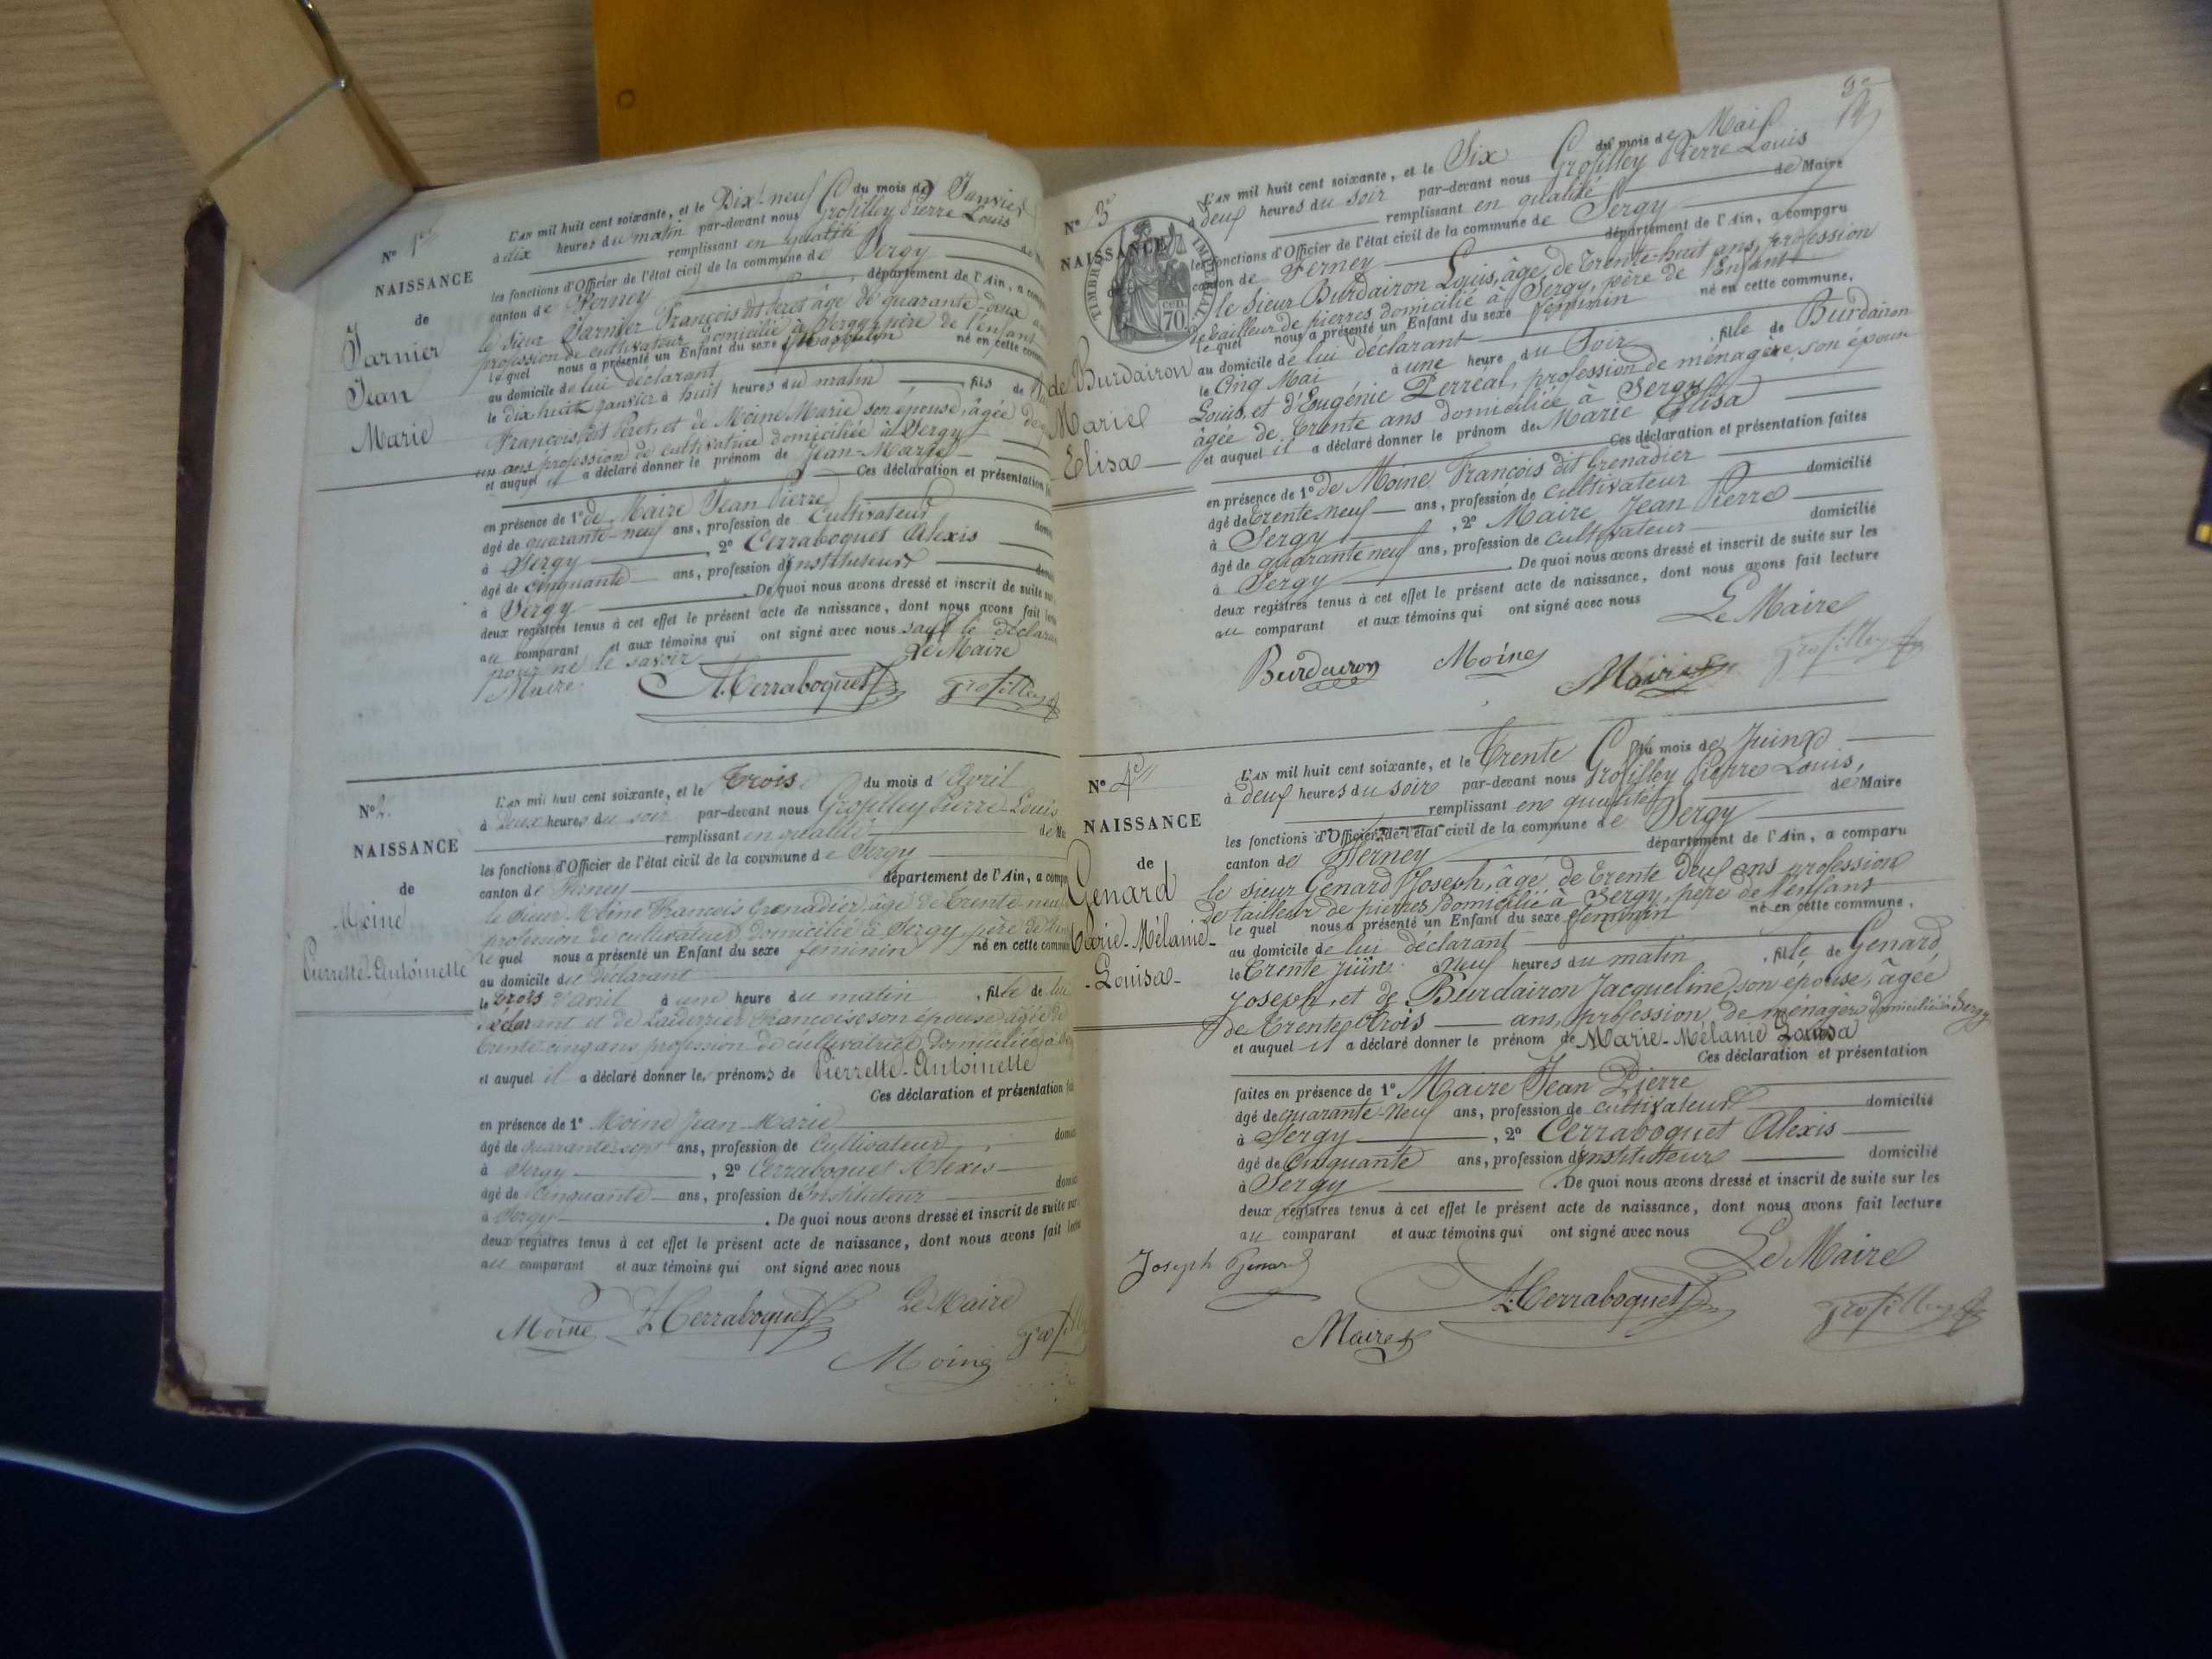 N° 1er
NAISSANCE
de
Jarnier
Jean
Marie
L'AN mil huit cent soixante, et le Dix-neuf du mois de Janvier
à dix heures du matin par-devant nous Grosfilley Pierre Louis
remplissant en qualité
les fonctions d'Officier de l'état civil de la commune de Sergy
canton de Ferney département de l'Ain, a
le sieur Jarnier François dit Péret âgé de quarante-deux
profession de cultivateur domicilié à Sergy, père de l'enfant
lequel nous a présenté un Enfant du sexe Masculin né en cette
au domicile de lui déclarant
le dix huit janvier à huit heures du matin fils de
François dit Péret, et de Moine Marie son épouse, âgée de
un ans profession de cultivatrice domiciliée à Sergy
et auquel il a déclaré donner le prénom de Jean-Marie
Ces déclaration et présentation
en présence de 1° de Maire Jean Pierre
âgé de quarante-neuf ans, profession de Cultivateur
à Sergy , 2° Cerraboquet Alexis
âgé de cinquante ans, profession d'instituteur
à Sergy . De quoi nous avons dressé et inscrit de suite
deux registres tenus à cet effet le présent acte de naissance, dont nous avons fait
au comparant et aux témoins qui ont signé avec nous sauf le déclarant
pour ne le savoir Le Maire
Maire A. Cerraboquet Grosfilley
N° 2.
NAISSANCE
de
Moine
Pierrette-Antoinette
L'AN mil huit cent soixante, et le Trois du mois d'Avril
à Deux heures du soir par-devant nous Grosfilley Pierre Louis
remplissant en qualité de
les fonctions d'Officier de l'état civil de la commune de Sergy
canton de Ferney département de l'Ain, a
le sieur Moine François Grenadier, âgé de trente neuf
profession de cultivateur domicilié à Sergy père de
le quel nous a présenté un Enfant du sexe féminin né en cette
au domicile du déclarant
le trois d'avril à une heure du matin , fille de lui
déclarant et de Françoise son épouse âgée de
trente-cinq ans profession de cultivatrice, domiciliée à
et auquel il a déclaré donner les prénoms de Pierrette-Antoinette
Ces déclaration et présentation
en présence de 1° Moine Jean-Marie
âgé de quarante-sept ans, profession de Cultivateur
à Sergy , 2° Cerraboquet Alexis
âgé de Cinquante ans, profession d'Instituteur
à Sergy . De quoi nous avons dressé et inscrit de suite sur
deux registres tenus à cet effet le présent acte de naissance, dont nous avons fait
au comparant et aux témoins qui ont signé avec nous
Moine A. Cerraboquet Le Maire
Moine
N° 3e
NAISSANCE
TIMBRE IMPÉRIAL
70 cen.
de Burdairon
Marie
Elisa
L'AN mil huit cent soixante, et le Six du mois de Mai
à deux heures du soir par-devant nous Grosfilley Pierre Louis
remplissant en qualité de Maire
les fonctions d'Officier de l'état civil de la commune de Sergy
canton de Ferney département de l'Ain, a comparu
le sieur Burdairon Louis, âgé de trente-huit ans, profession
de tailleur de pierres domicilié à Sergy, père de l'enfant
le quel nous a présenté un Enfant du sexe féminin né en cette commune,
au domicile de lui déclarant
le Cinq Mai à une heure du Soir , fille de Burdairon
Louis, et d'Eugénie Perréal, profession de ménagère, son épouse
âgée de trente ans domiciliée à Sergy
et auquel il a déclaré donner le prénom de Marie Elisa
Ces déclaration et présentation faites
en présence de 1° de Moine François dit Grenadier
âgé de trente-neuf ans, profession de cultivateur domicilié
à Sergy , 2° Maire Jean Pierre
âgé de quarante neuf ans, profession de cultivateur domicilié
à Sergy . De quoi nous avons dressé et inscrit de suite sur les
deux registres tenus à cet effet le présent acte de naissance, dont nous avons fait lecture
au comparant et aux témoins qui ont signé avec nous Le Maire
Burdairon Moine Maire Grosfilley
N° 4e
NAISSANCE
de
Genard
Marie-Mélanie-
-Louisa-
L'AN mil huit cent soixante, et le Trente du mois de Juin
à deux heures du soir par-devant nous Grosfilley Pierre Louis,
remplissant en qualité de Maire
les fonctions d'Officier de l'état civil de la commune de Sergy
canton de Ferney département de l'Ain, a comparu
le sieur Genard Joseph, âgé de trente deux ans profession
de tailleur de pierres, domicilié à Sergy, père de l'enfant
le quel nous a présenté un Enfant du sexe féminin né en cette commune,
au domicile de lui déclarant
le trente juin à neuf heures du matin , fille de Genard
Joseph, et de Burdairon Jacqueline, son épouse, âgée
de trente trois ans, profession de ménagère domiciliée à Sergy
et auquel il a déclaré donner le prénom de Marie-Mélanie Louisa
Ces déclaration et présentation
faites en présence de 1° Maire Jean Pierre
âgé de quarante-neuf ans, profession de cultivateur domicilié
à Sergy , 2° Cerraboquet Alexis
âgé de Cinquante ans, profession d'instituteur domicilié
à Sergy . De quoi nous avons dressé et inscrit de suite sur les
deux registres tenus à cet effet le présent acte de naissance, dont nous avons fait lecture
au comparant et aux témoins qui ont signé avec nous
Joseph Genard Le Maire
Maire A. Cerraboquet Grosfilley